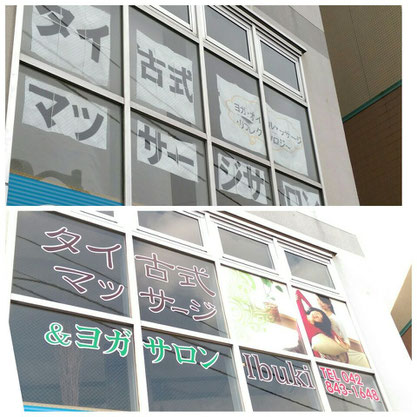 タイ古式
マッサージサロン
ヨガ・オイルマッサージ
タイ古式
マッサージ
&ヨガサロン Ibuki
TEL 042
843-1648